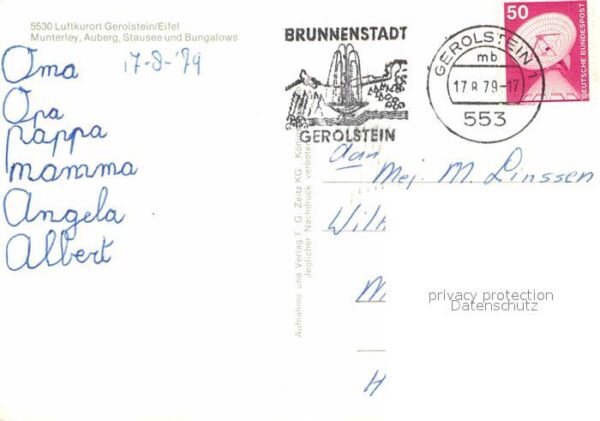 5530 Luftkurort Gerolstein/Eifel
Munterley, Auberg, Stausee und Bungalows
17-8-'79
Oma
Opa
pappa
mamma
Angela
Albert
BRUNNENSTADT
GEROLSTEIN
GEROLSTEIN 1
mb
17.8.79-17
553
50
DEUTSCHE BUNDESPOST
Aufnahme und Verlag F. G. Zeitz KG., Kön
Jeglicher Nachdruck verboten
aan
Mej. M. Linssen
Wil
M
H
privacy protection
Datenschutz